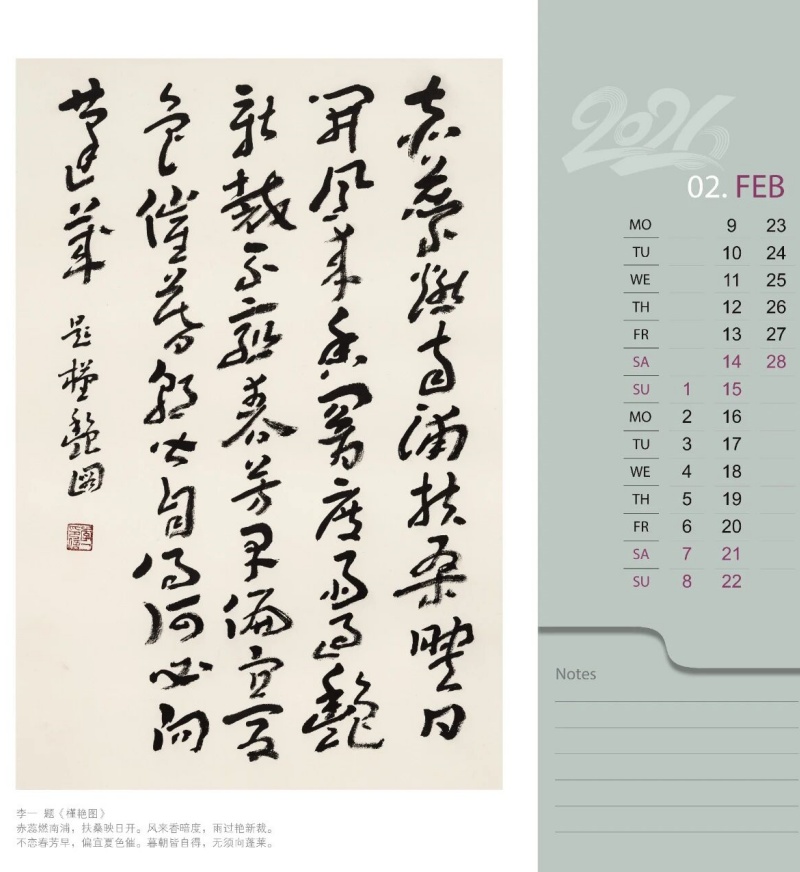 赤蕊燃南浦扶桑映日
開風来香闇度雨過艷
新裁不恋春芳早偏宜夏
色催暮朝皆自得何必向
蓬莱 題槿艷圖
李一 题《槿艳图》
赤蕊燃南浦，扶桑映日开。风来香暗度，雨过艳新裁。
不恋春芳早，偏宜夏色催。暮朝皆自得，无须向蓬莱。
2026
02. FEB
MO 9 23
TU 10 24
WE 11 25
TH 12 26
FR 13 27
SA 14 28
SU 1 15
MO 2 16
TU 3 17
WE 4 18
TH 5 19
FR 6 20
SA 7 21
SU 8 22
Notes